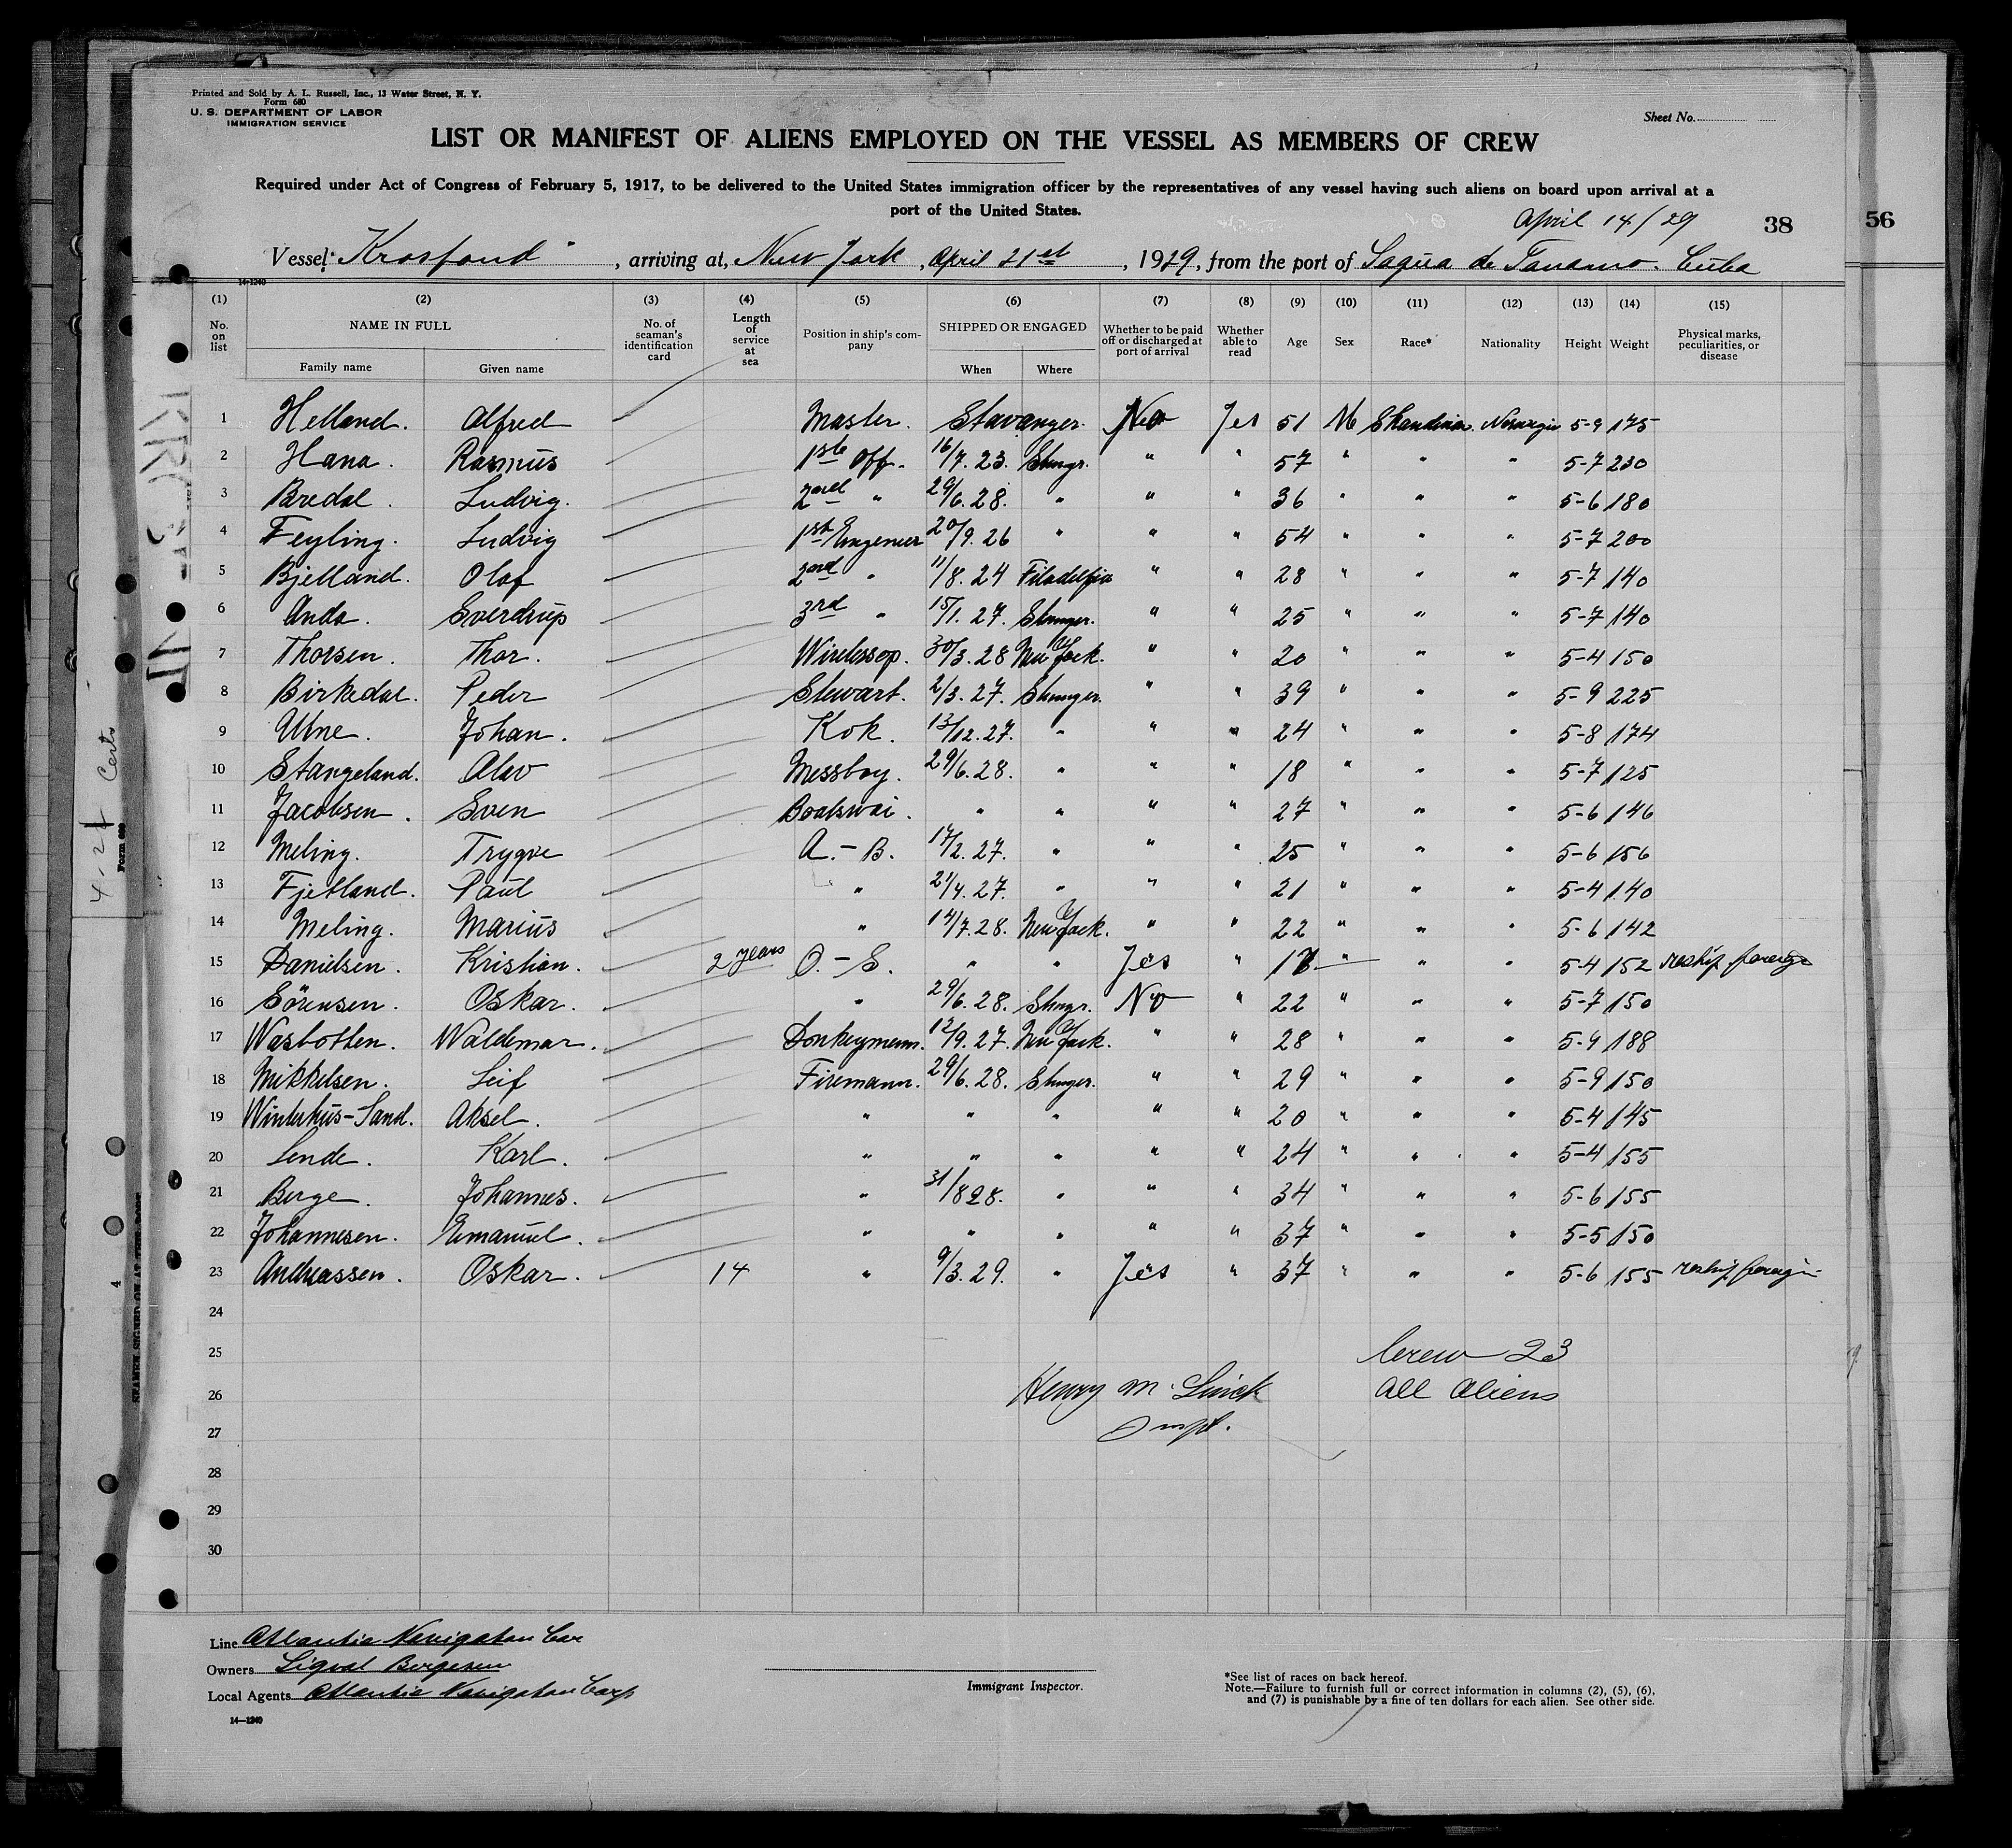 Printed and Sold by A. L. Russell, Inc., 13 Water Street, N. Y.
Form 680
U. S. DEPARTMENT OF LABOR
IMMIGRATION SERVICE
Sheet No.
LIST OR MANIFEST OF ALIENS EMPLOYED ON THE VESSEL AS MEMBERS OF CREW
Required under Act of Congress of February 5, 1917, to be delivered to the United States immigration officer by the representatives of any vessel having such aliens on board upon arrival at a
port of the United States.
April 14/29 38 56
Vessel "Krosfond", arriving at, New York, April 21st, 1929, from the port of Sagua de Tanamo. Cuba
14-1240
(1) (2) (3) (4) (5) (6) (7) (8) (9) (10) (11) (12) (13) (14) (15)
No. on list NAME IN FULL Family name Given name No. of seaman's identification card Length of service at sea Position in ship's company SHIPPED OR ENGAGED When Where Whether to be paid off or discharged at port of arrival Whether able to read Age Sex Race* Nationality Height Weight Physical marks, peculiarities, or disease
1 Helland. Alfred Master. Stavanger. No Yes 51 M Skandinav. Norwegie 5-9 175
2 Hana. Rasmus 1ste Off. 16/7.23. Stvngr. " " 57 " " " 5-7 230
3 Bredal. Ludvig. 2nd " 29/6.28. " " " 36 " " " 5-6 180
4 Feyling. Ludvig 1st Engenier 20/9.26 " " " 54 " " " 5-7 200
5 Bjelland. Olaf 2nd " 11/8.24 Filadelfia " " 28 " " " 5-7 140
6 Anda. Sverdrup 3rd " 15/1.27. Stvnger. " " 25 " " " 5-7 140
7 Thorsen. Thor. Wirelessop. 30/3.28 New York. " " 20 " " " 5-4 150
8 Birkedal. Peder Stewart. 2/3.27. Stvnger. " " 39 " " " 5-9 225
9 Utne. Johan. Kok. 13/12.27. " " " 24 " " " 5-8 174
10 Stangeland. Olav Messboy. 29/6.28. " " " 18 " " " 5-7 125
11 Jacobsen. Sven Boatswai. " " " " 27 " " " 5-6 146
12 Meling. Trygve A.-B. 17/2.27. " " " 25 " " " 5-6 156
13 Fjetland. Paul " 21/4.27. " " " 21 " " " 5-4 140
14 Meling. Marius " 14/7.28. New York. " " 22 " " " 5-6 142
15 Danielsen. Kristian. 2 years O.-S. " " Yes " " " " 5-4 152 reship foreign
16 Sörensen. Oskar. " 29/6.28. Stvngr. No " 22 " " " 5-7 150
17 Wasbotten. Waldemar. Donkeymann. 12/9.27. New York. " " 28 " " " 5-9 188
18 Mikkelsen. Leif Firemann. 29/6.28. Stvnger. " " 29 " " " 5-9 150
19 Winterhus-Sand. Aksel. " " " " " 20 " " " 5-4 145
20 Lende. Karl. " " " " " 24 " " " 5-4 155
21 Berge. Johannes. " 31/8 28. " " " 34 " " " 5-6 155
22 Johannesen. Emanuel. " " " " " 37 " " " 5-5 150
23 Andreassen. Oskar. 14 " 9/3.29. " Yes " 37 " " " 5-6 155 reship foreign
24
25 Crew 23
26 Henry M. Linck All Aliens
27 Inspt.
28
29
30
Line Atlantic Navigaton Cor
Owners Sigval Bergesen
Local Agents Atlantic Navigaton Corp
14—1240
Immigrant Inspector.
*See list of races on back hereof.
Note.—Failure to furnish full or correct information in columns (2), (5), (6),
and (7) is punishable by a fine of ten dollars for each alien. See other side.